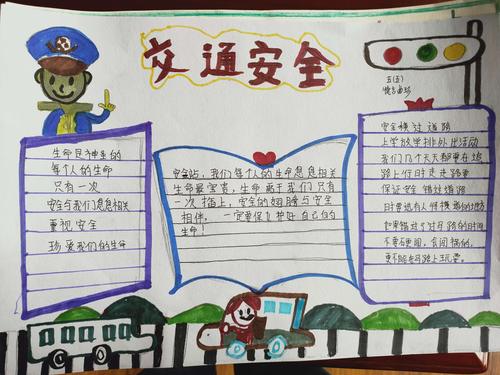 交通安全
五(五)
生命是神圣的
每个人的生命
只有一次
安全与我们息息相关
重视安全
珍爱我们的生命
安全站,我们每个人的生命息息相关
生命最宝贵,生命属于我们只有
一次 插上,安全的翅膀与安全
相伴。一定要保护好自己的
生命!
安全横过道路
上学放学排外出活动
我们几个天天都要在
路上行时走走路要
保证安全 错过道路
时要选有人行横道的地方
如果错过了过马路的时间
不要硬闯,贪图
更不能在马路上玩耍。